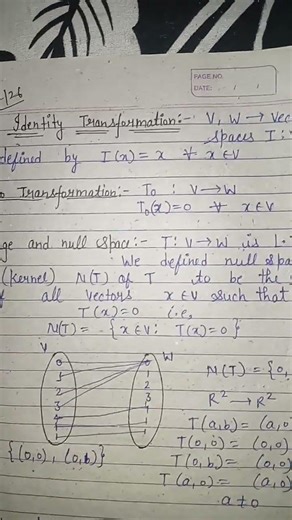 PAGE NO.
DATE: / /
/26
Identity Transformation:- V, W → Vec
spaces I:
defined by I(x) = x ∀ x ∈ V
o Transformation:- T₀ : V → W
T₀(x) = 0 ∀ x ∈ V
ge and null space:- T: V → W is L.T
We defined null spa
(Kernel) N(T) of T to be the
all vectors x ∈ V such that
T(x) = 0 i.e,
N(T) = { x ∈ V : T(x) = 0 }
V W
N(T) = {0,
R² → R²
T(a,b) = (a,0
T(0,0) = (0,0)
{(0,0), (0,b)} T(0,b) = (0,0)
T(a,0) = (a,0)
a ≠ 0